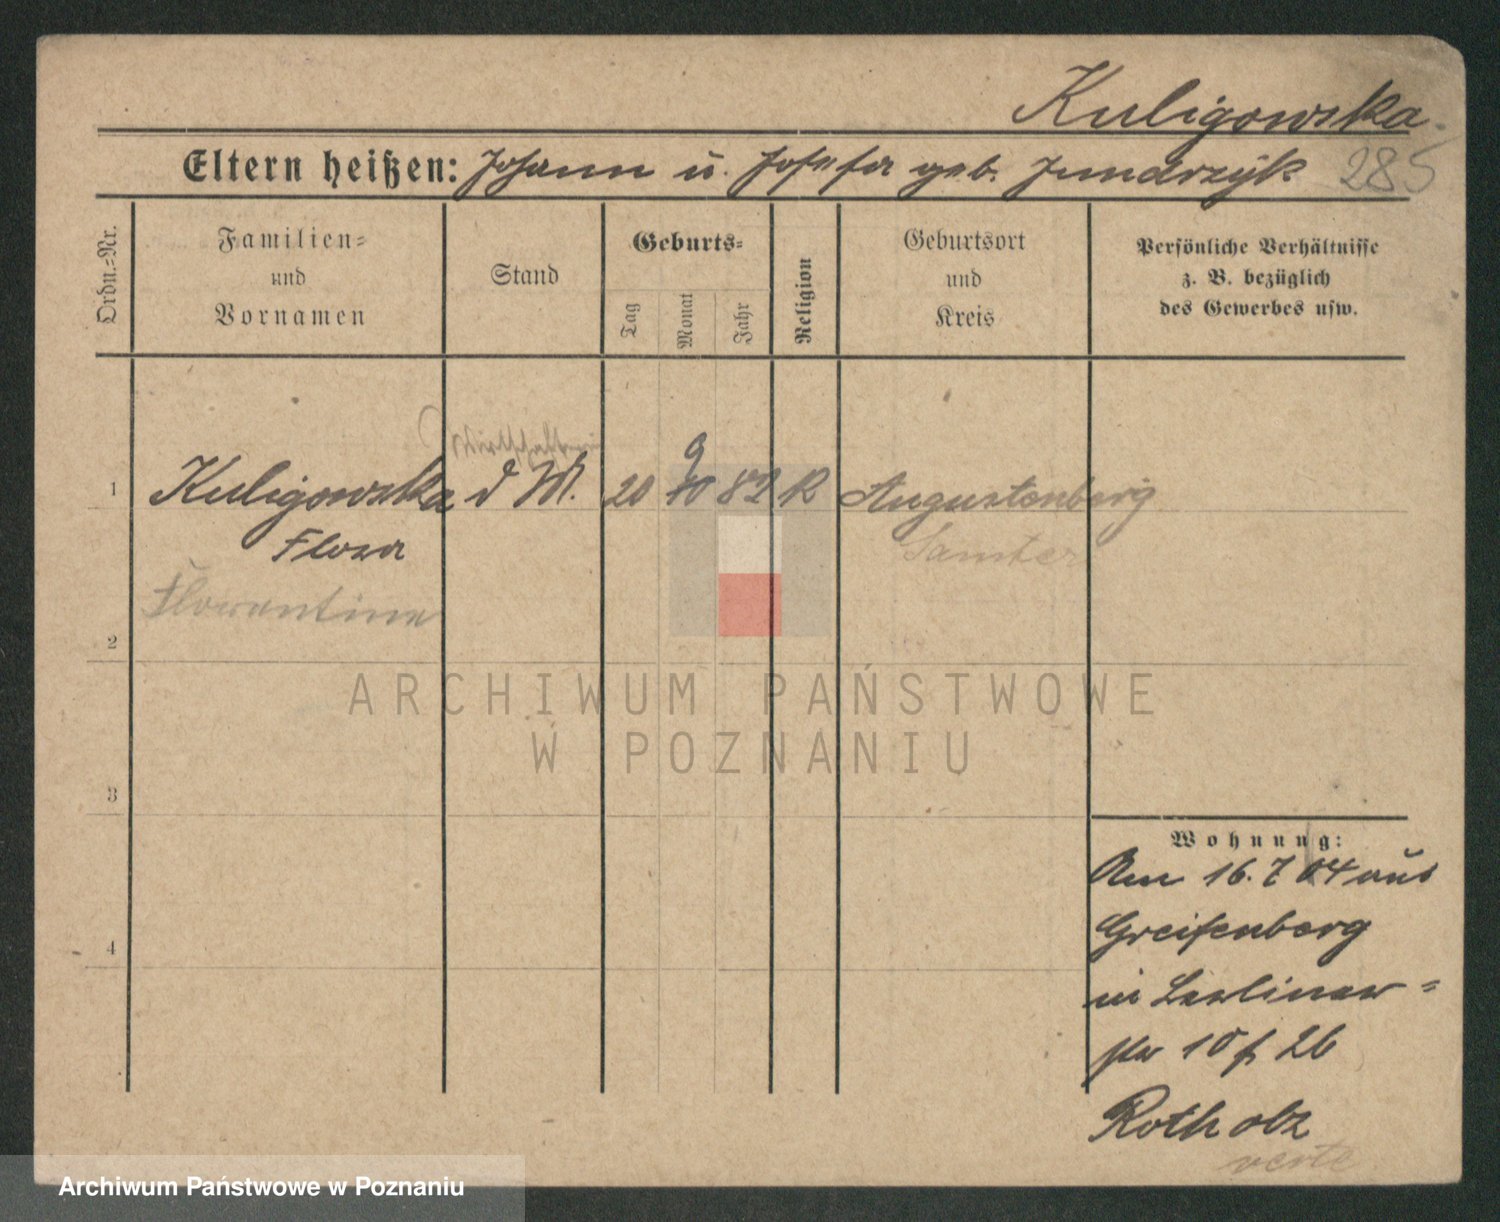 Kuligowska.
Eltern heißen: Johann u. Josefa geb.
285
Ordn.-Nr.
Familien-
und
Vornamen
Stand
Geburts-
Tag
Monat
Jahr
Religion
Geburtsort
und
Kreis
Persönliche Verhältnisse
z. B. bezüglich
des Gewerbes usw.
9
1 Kuligowska d M. 20 10 82 K Augustenberg
Flora
Samter
Florentine
2
ARCHIWUM PAŃSTWOWE
W POZNANIU
3
Wohnung:
Am 16. 7 04 aus
Greifenberg
4
in Berliner-
str 10 f 26
Rothholz
verte
Archiwum Państwowe w Poznaniu